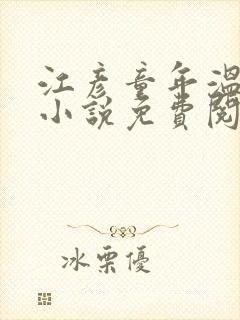 江彥童年溫
小說免費閱
冰栗優